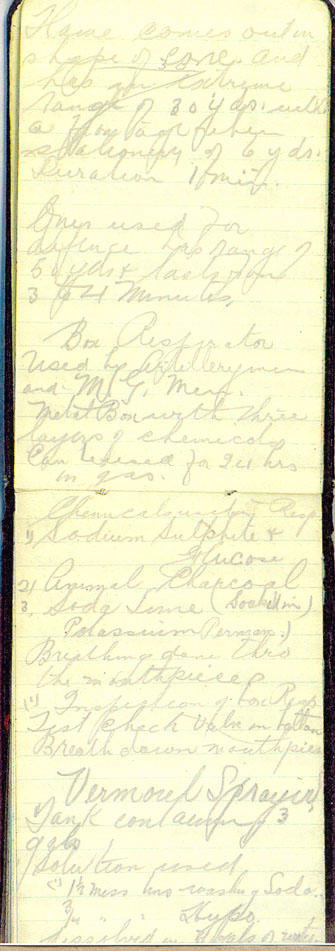 Flame comes out in
shape of cone and
has an Extreme
range of 30 yds. with
a frontage when
stationery of 6 yds.
Duration 1 min.
Ones used for
defence has range of
50 yds & lasts from
3 to 4 Minutes,
Box Respirator
Used by Artillerymen
and M. G. Men.
Metal Box with three
layers of chemicals
Can be used for 24 hrs
in gas.
Chemicals used in Resp
1) Sodium Sulphite &
Glucose
2) Animal Charcoal
3 Soda Lime (Soaked in)
Potassium Perman.)
Breathing done thro
the mouthpiece
(1) Inspection of box Resp
Test Check Valve on bottom
Breathe down mouthpiece
Vermorel Sprayer
Tank containing 3
gals
Solution used
(1) 1½ washing Soda.
3 " " " Hypo.
dissolved in of water